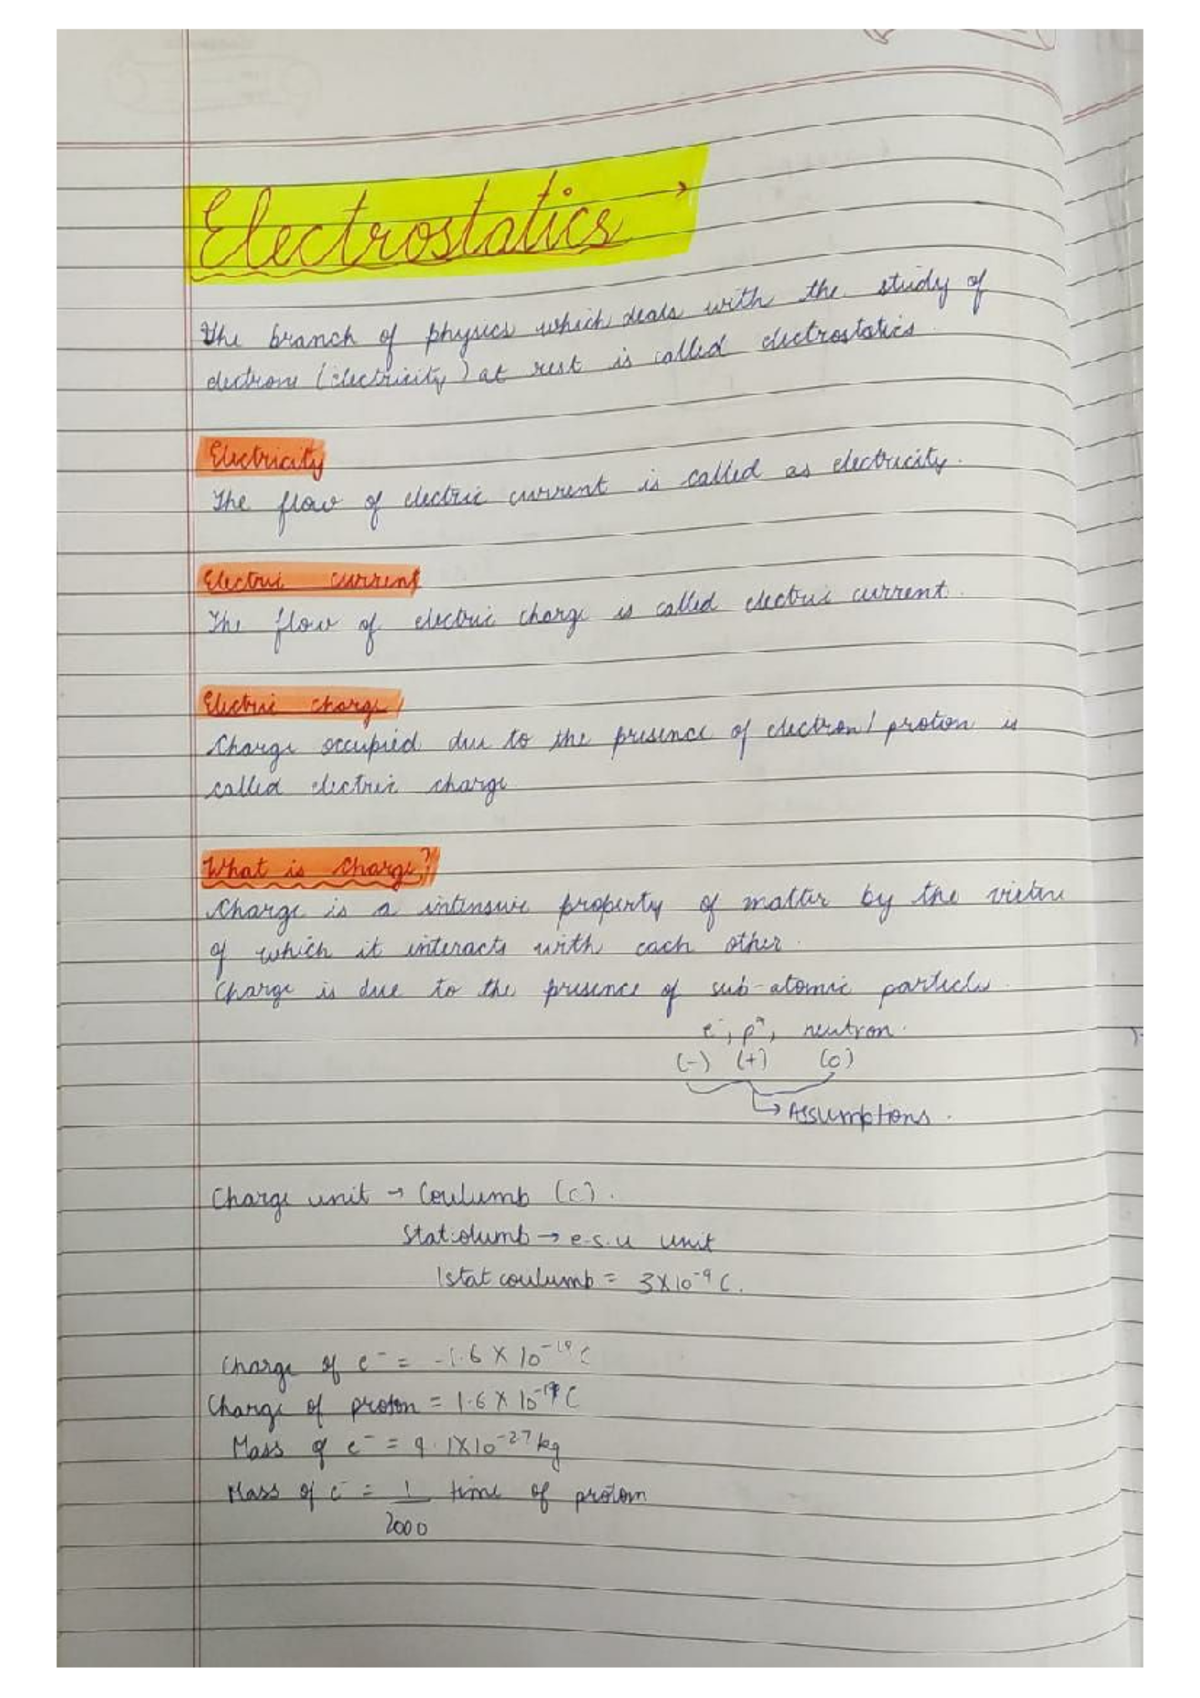 Electrostatics →
The branch of physics which deals with the study of
electrons (electricity) at rest is called electrostatics.
Electricity
The flow of electric current is called as electricity.
Electric current
The flow of electric charge is called electric current.
Electric charge
Charge occupied due to the presence of electron/proton is
called electric charge
What is charge?
Charge is a intensive property of matter by the virtue
of which it interacts with each other.
Charge is due to the presence of sub-atomic particles.
e⁻, p⁺, neutron.
(-) (+) (0)
↳ Assumptions.
Charge unit → Coulumb (C).
Statcolumb → e.s.u unit
1 stat coulumb = 3×10⁻⁹ C.
Charge of e⁻ = -1.6 × 10⁻¹⁹ C
Charge of proton = 1.6 × 10⁻¹⁹ C
Mass of e⁻ = 9.1×10⁻²⁷ kg
Mass of e⁻ = 1/2000 time of proton